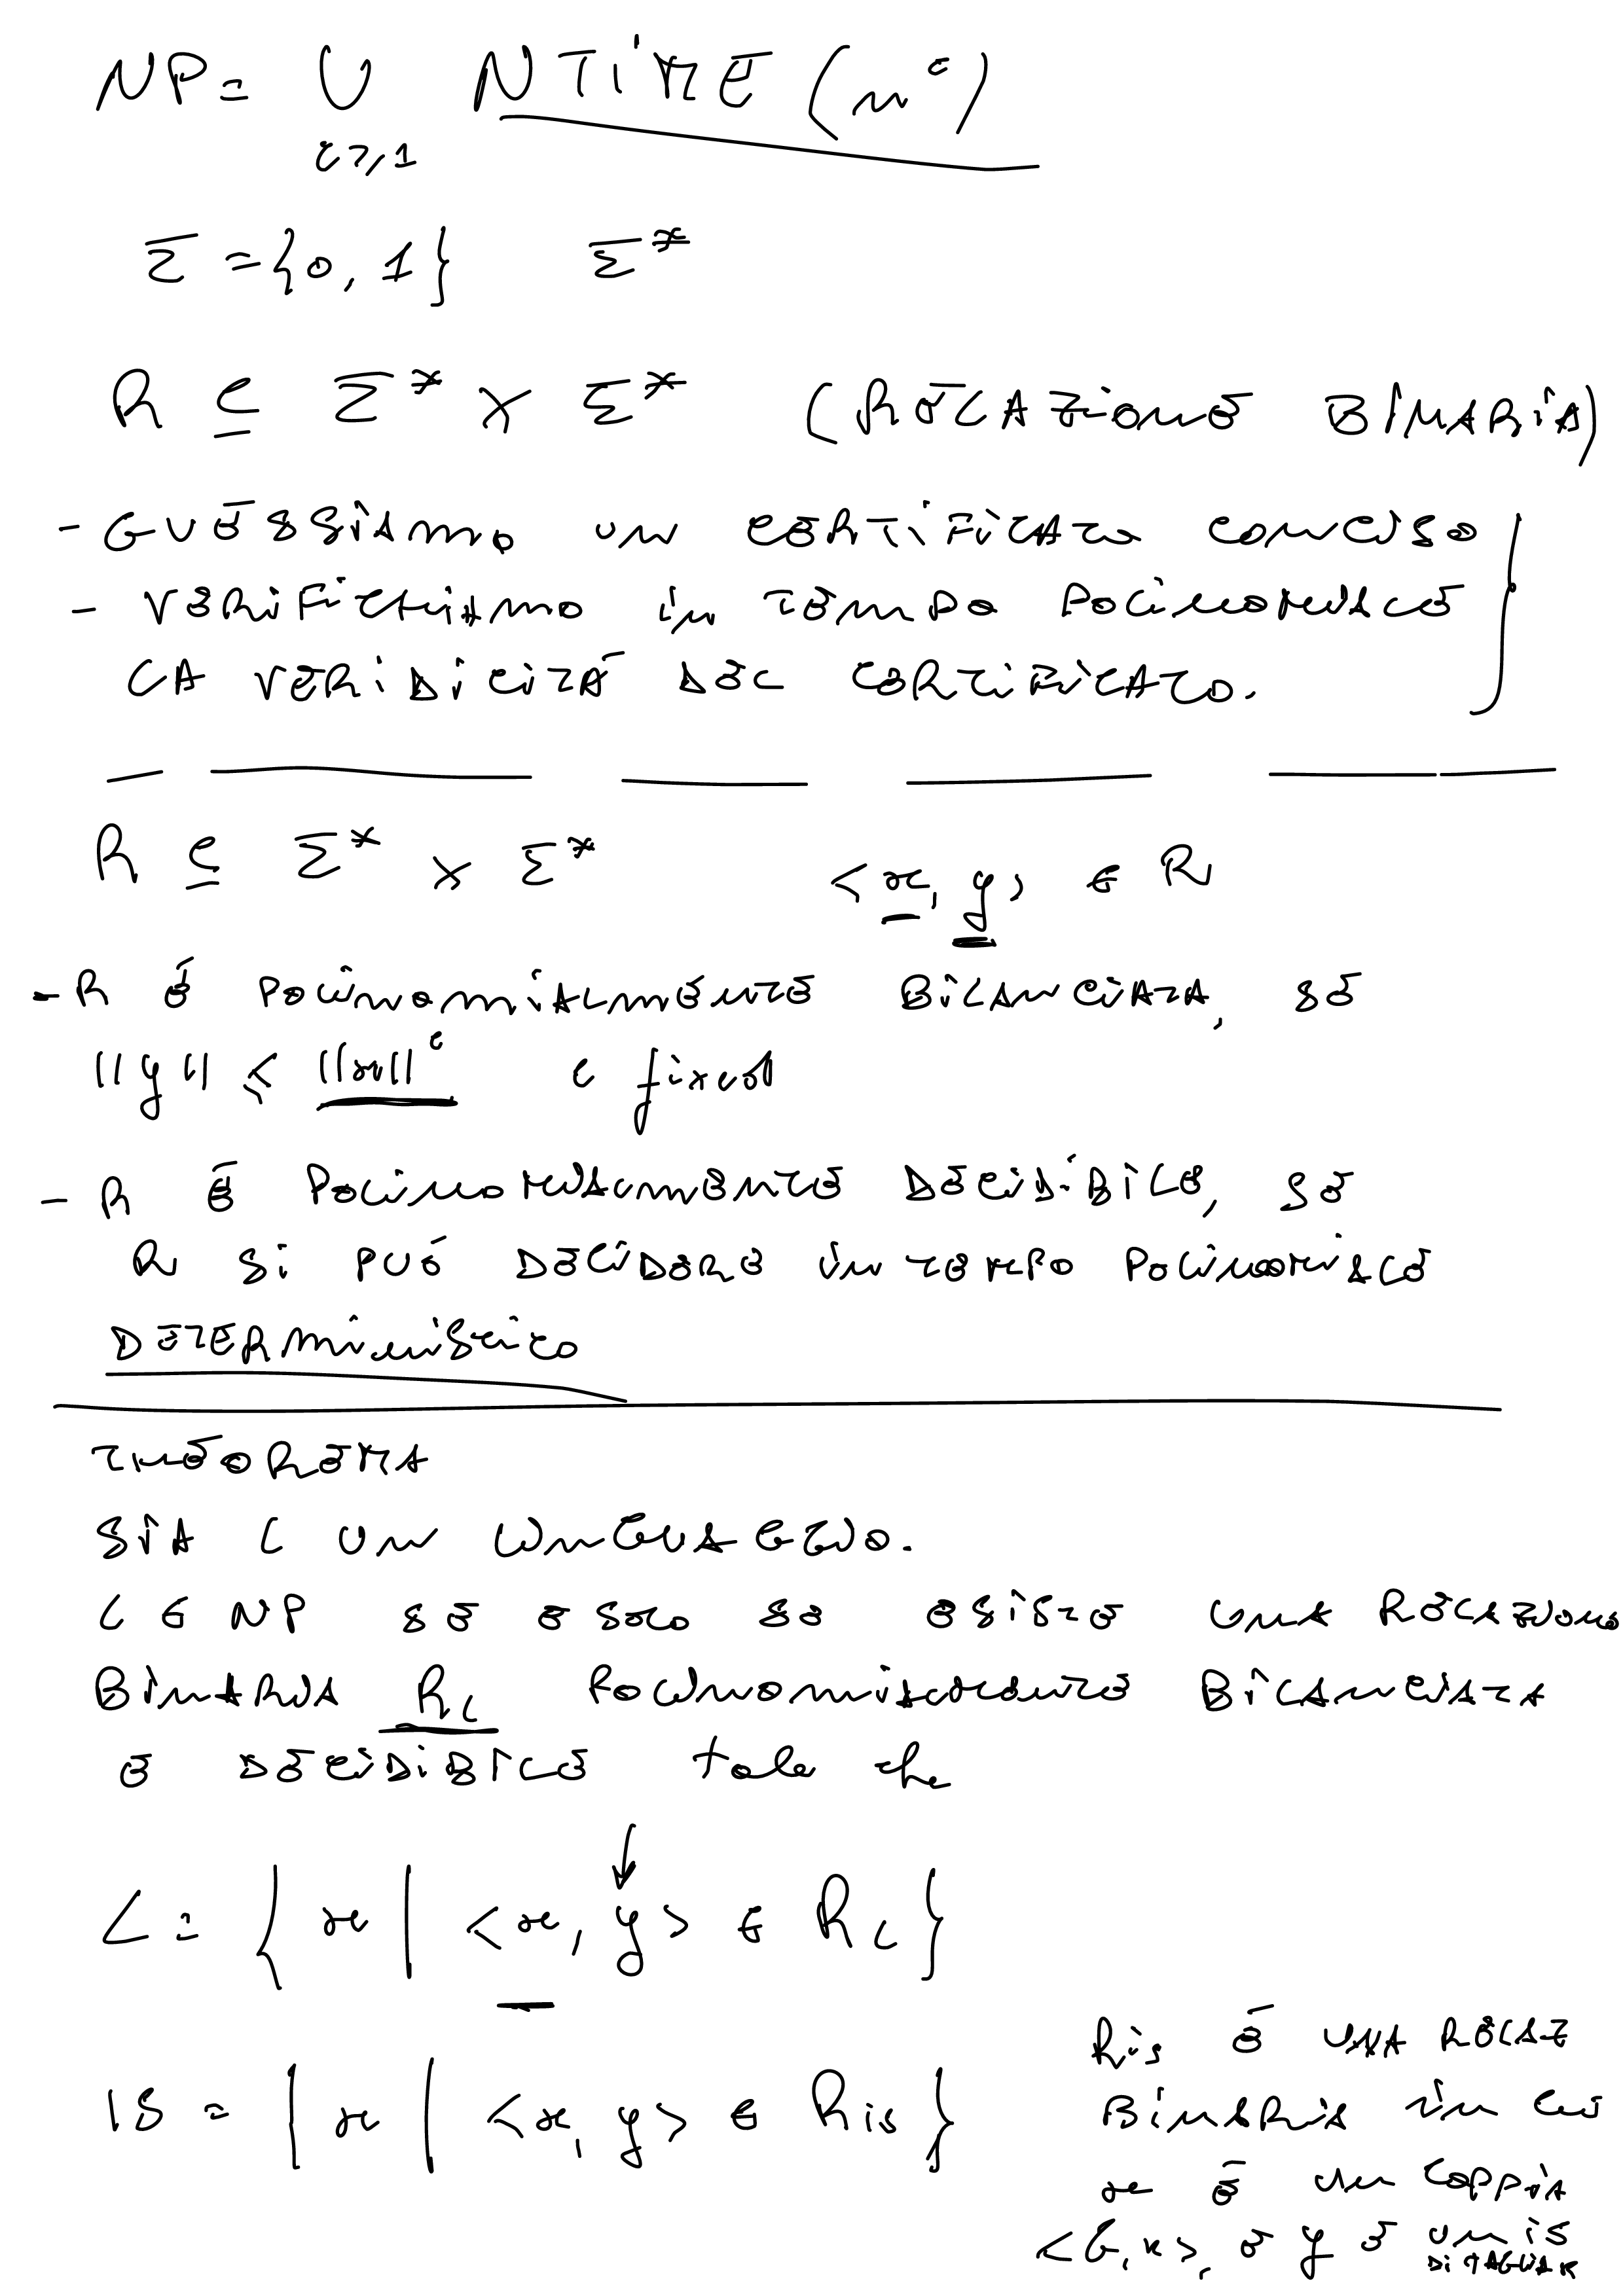 NP = ∪ NTIME (n^c)
c ≥ 1
Σ = {0, 1} Σ*
R ⊆ Σ* × Σ* (RELAZIONE BINARIA)
- GUESSIAMO UN CERTIFICATO CONCISO
- VERIFICHIAMO IN TEMPO POLINOMIALE
LA VERIDICITÀ DEL CERTIFICATO.
R ⊆ Σ* × Σ* <x, y> ∈ R
- R È POLINOMIALMENTE BILANCIATA, SE
||y|| ≤ ||x||^c c fixed
- R È POLINOMIALMENTE DECIDIBILE, SE
R SI PUÓ DECIDERE IN TEMPO POLINOMIALE
DETERMINISTICO
THEOREMA
SIA L UN LINGUAGGIO.
L ∈ NP SE E SOLO SE ESISTE UNA RELAZIONE
BINARIA R_L POLINOMIALMENTE BILANCIATA
E DECIDIBILE tale che
L = { x | <x, y> ∈ R_L }
IS = { x | <x, y> ∈ R_is }
R_is È UNA RELAZ
BINARIA IN CUI
x È UN COPPIA
<G, K>, E y È UN IS
DI TAGLIA K